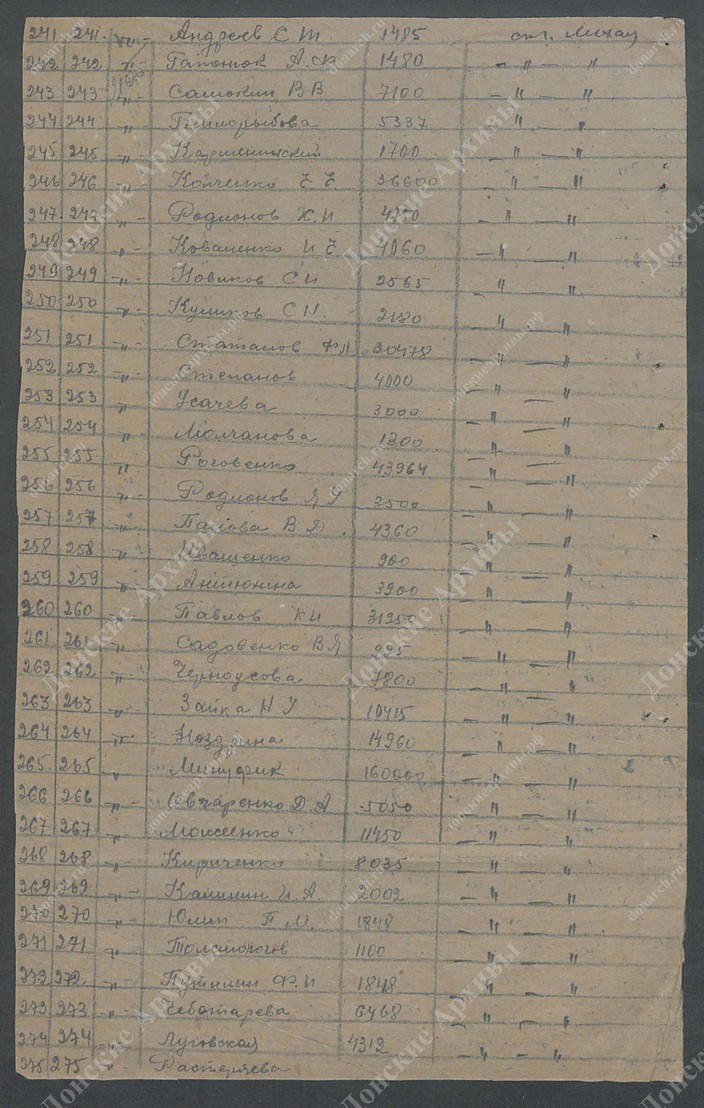 241 241 -"- Андреев С Т 1485 ст. Лихая
242 242 -"- Гапонюк А.Ф 1480 - " - "
243 243 -"- Самохин В В 7100 - " - "
244 244 -"- 5337 " - "
245 245 -"- Карпенинский 1700 - " - "
246 246 -"- Койченко Е Е. 36600 - " - "
247. 247 -"- Родионов Х.И 4250 - " - "
248 248 -"- Коваленко И Е 4060 - " - "
249 249 -"- Новиков С И 2565 " - "
250 250 -"- Куликов С И. 2180 " - "
251 251 -"- Статанов Ф П 30478 " - "
252 252 -"- Степанов 4000 " - "
253 253 -"- Усачева 3000 " - "
254 254 -"- Молчанова 1300 " - "
255 255 " Роговенко 43964 " - "
256 256 -"- Родионов Я У 3500 " - "
257 257 -"- В Д. 4360 - " - "
258 258 " Иващенко 900 - " - "
259 259 -"- Антюхина 3900 - " - "
260 260 -"- Павлов К И 31250 - " - "
261 261 -"- Садовенко В Я 995 - " - "
262 262 -"- Черноусова 7800 - " - "
263 263 " Заика Н У 10415 - " - "
264 264 -"- Ноздрина 14960 - " - "
265. 265 " 160000 - " - "
266 266 -"- Овчаренко Д А 5050 - " - "
267 267 -"- Моисеенко 11450 - " - "
268 268 -"- Кириченко 8035 - " - "
269 269 -"- Калинин И. А. 2002 - " - "
270 270 -"- Юлин П М. 1848 - " - "
271 271 -"- Толсторогов 1100 - " - "
272 272 -"- Путилин Ф. И 1848 - " - "
273 273 -"- Чеботарева 6468 - " - "
274 274 -"- Луговская 4312 - " - "
275 275 " Растеряева
Донские Архивы
donarch.ru